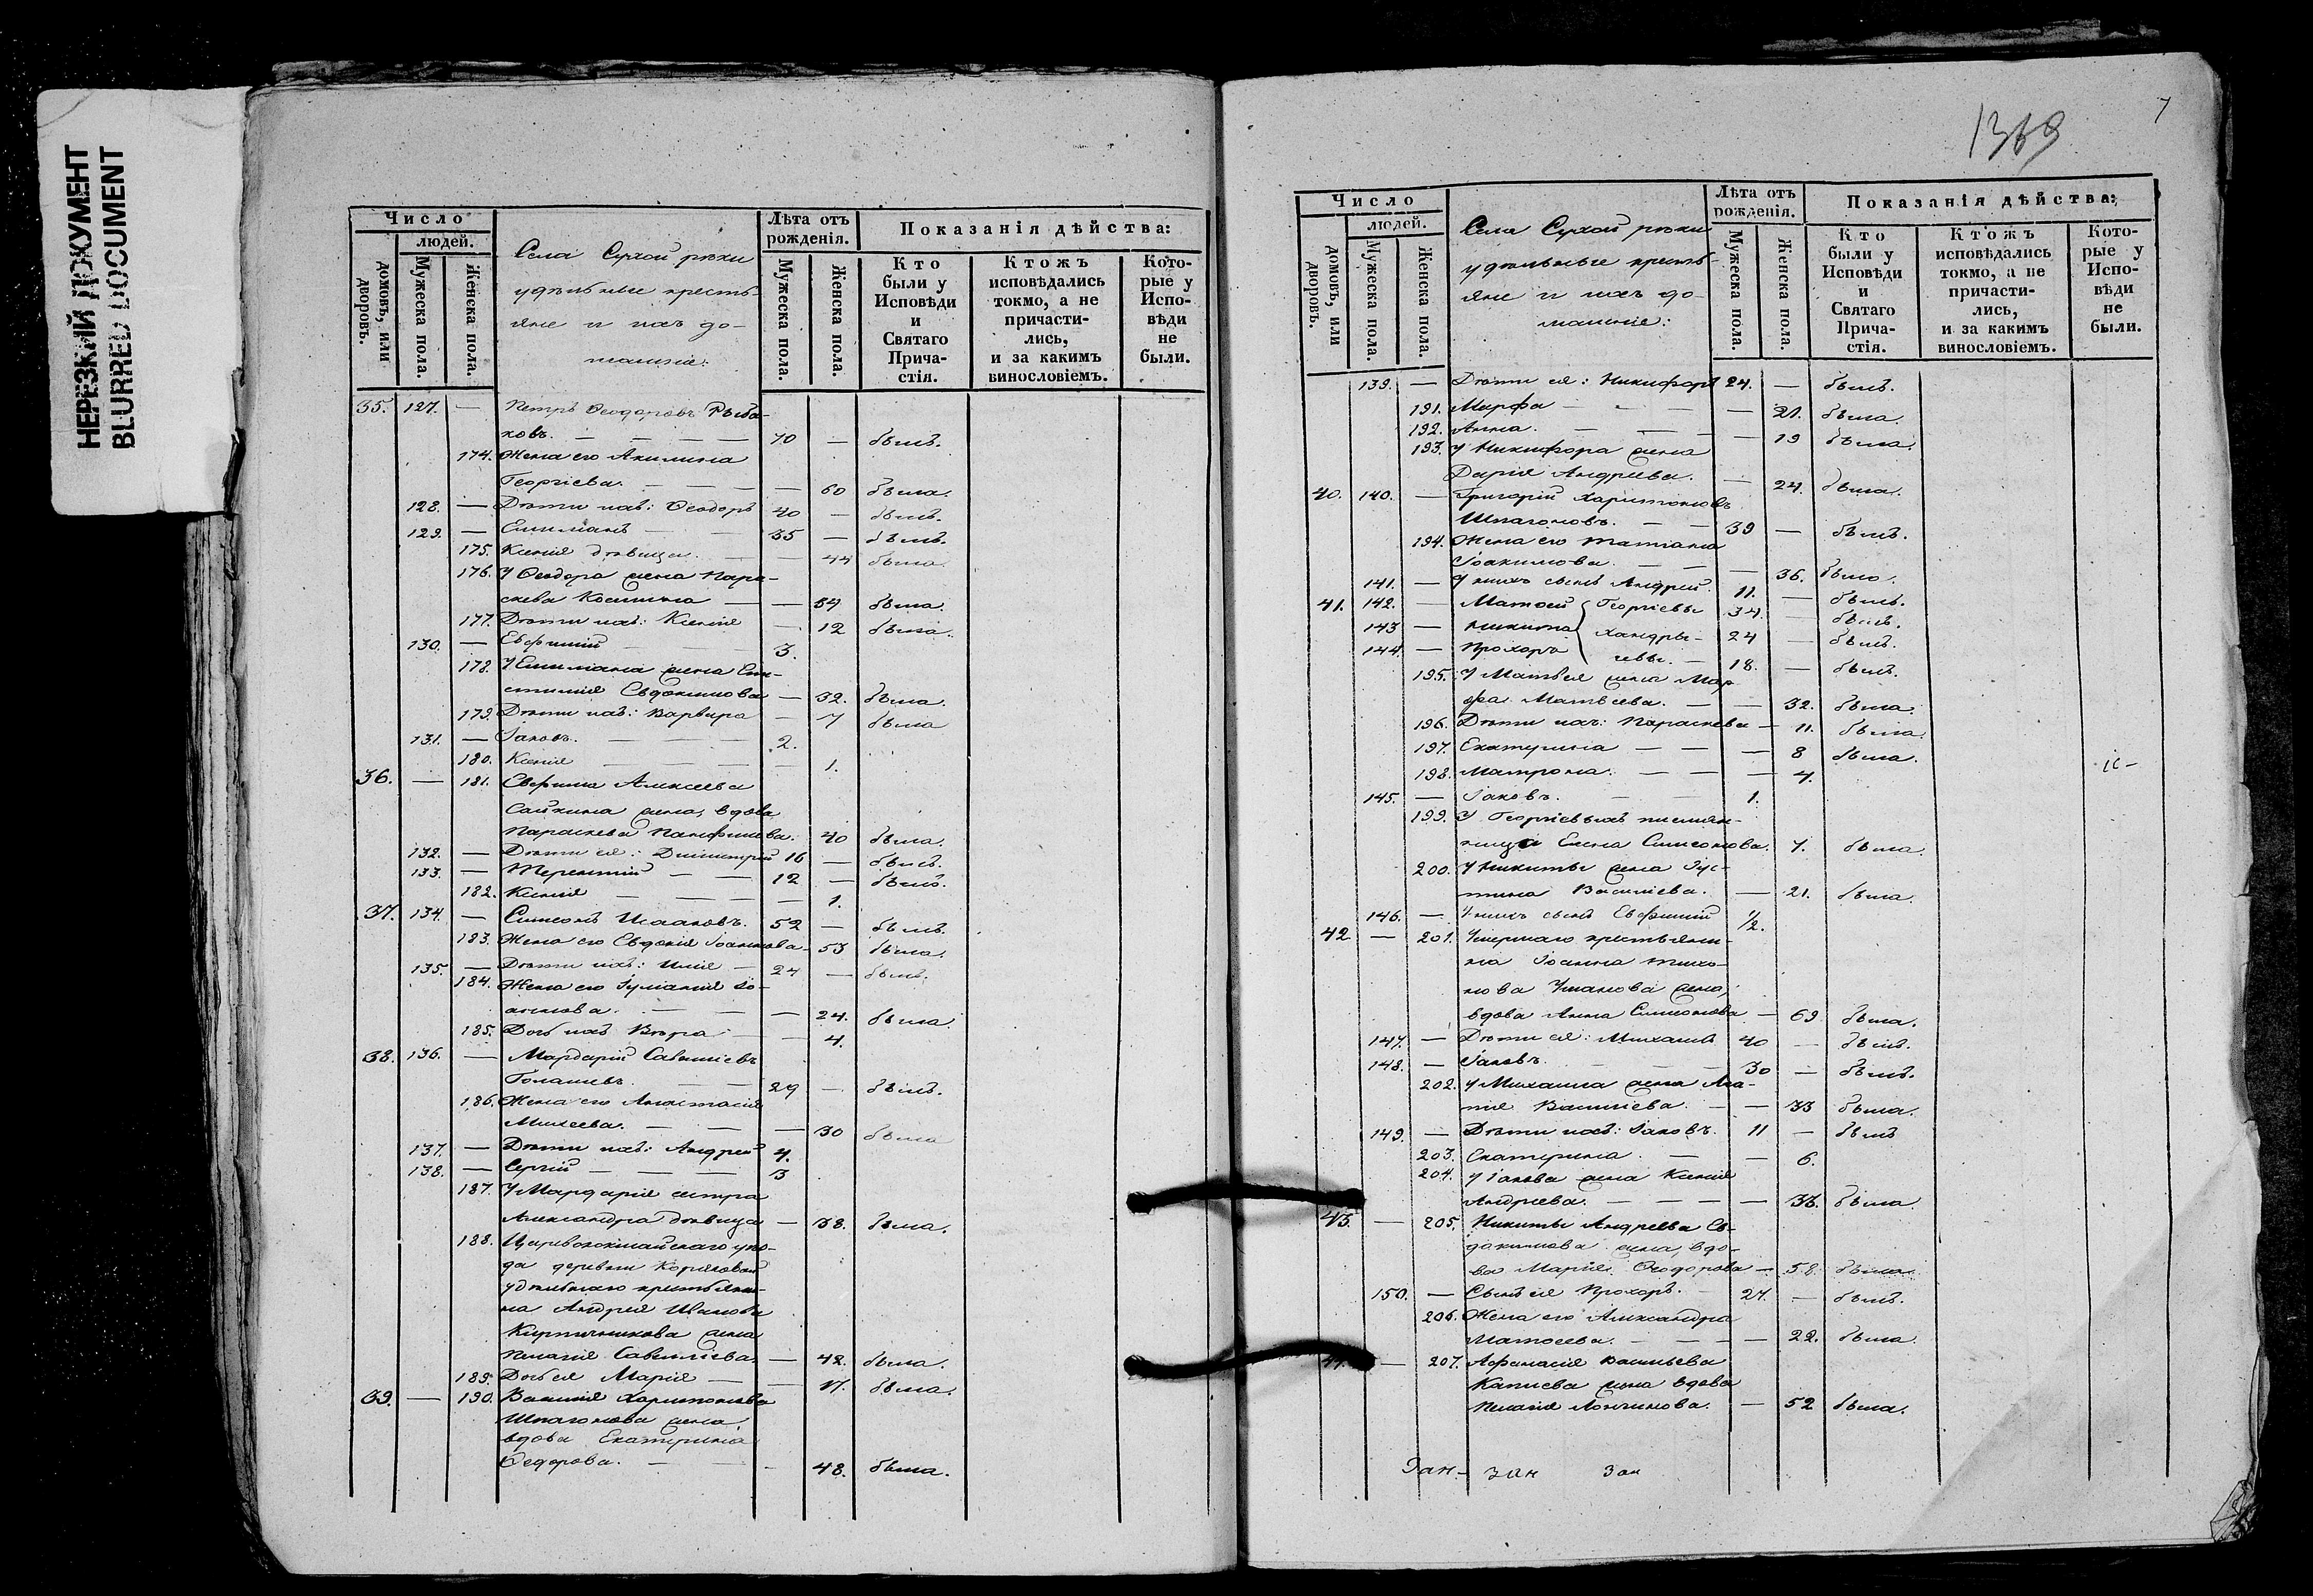 НЕРЕЗКИЙ ДОКУМЕНТ
BLURRED DOCUMENT
Число
людей.
домовъ, или дворовъ.
Мужеска пола.
Женска пола.
Села Сухой рѣки
удѣльные кресть-
яне и ихъ до-
машніе:
Лѣта отъ рожденія.
Мужеска пола.
Женска пола.
Показанія дѣйства:
Кто были у Исповѣди и Святаго Прича-стія.
Ктожъ исповѣдались токмо, а не причасти-лись, и за какимъ винословіемъ.
Кото-рые у Испо-вѣди не были.
35. 127. — Петръ Ѳеодоровъ Рыба-
ковъ. — 70 — былъ.
174. Жена его Акилина
Георгіева. — 60 была.
128. — Дѣти ихъ: Ѳеодоръ 40 — былъ.
129. — Емиліанъ 35 — былъ.
175. Ксенія дѣвица. 44 была.
176. У Ѳеодора жена Пара-
скева Косьмина — 37 была.
177. Дѣти ихъ: Ксенія — 12 была.
130. — Евфимій 3.
178. У Емиліана жена
Евдокимова — 32. была.
179. Дѣти ихъ: Варвара — 7 была
131. — Іаковъ. 2.
180. Ксенія — 1.
36. — 181. Ефрема Алексѣева
Сайкина жена, вдова
Параскева Панфилова. 40 была.
132. — Дѣти ея: Димитрій 16 — былъ.
133. — Терентій — 12 — былъ.
182. Ксенія — 1.
37. 134. — Симеонъ Исааковъ. 52 — былъ.
183. Жена его Евдокія Іоаннова — 53 была.
135. — Дѣти ихъ: Илія — 24 — былъ.
184. Жена его Іуліанія Іо-
аннова. — 24. была.
185. Дочь ихъ Вѣра — 4.
38. 136. — Мардарій Савеліевъ
29 — былъ.
186. Жена его Анастасія
Михеева. — 30 была
137. — Дѣти ихъ: Андрей 4.
138. — Сергій — 3
187. У Мардарія сестра
Александра дѣвица — 38. была.
188. Царевококшайскаго уѣз-
да деревни Коряковой
удѣльнаго крестьяни-
на Андрея Иванова
Кирпичникова жена
Пелагія Савеліева. — 42. была.
189. Дочь ея Марія — 17. была.
39. — 190. Василія Харитонова
Шпагонова жена,
вдова Екатерина
Ѳедорова. — 48. была.
1369
7
Число
людей.
домовъ, или дворовъ.
Мужеска пола.
Женска пола.
Села Сухой рѣки
удѣльные кресть-
яне и ихъ до-
машніе:
Лѣта отъ рожденія.
Мужеска пола.
Женска пола.
Показанія дѣйства:
Кто были у Исповѣди и Святаго Прича-стія.
Ктожъ исповѣдались токмо, а не причасти-лись, и за какимъ винословіемъ.
Кото-рые у Испо-вѣди не были.
139. — Дѣти ея: Никифоръ 24. — былъ.
191. Марфа — 21. была.
192. Анна. — 19 была.
193. У Никифора жена
Дарія Андреева. — 24. была.
40. 140. — Григорій Харитоновъ
Шпагоновъ. — 39 — былъ.
194. Жена его Татіана
Іоакимова. — 36. была.
141. — У нихъ сынъ Андрей. 11. — былъ.
41. 142. — Матѳей Георгіевы 34. — былъ.
143 — Никита 24 — былъ.
144. — Прохоръ 18. — былъ.
195. У Матѳея жена Мар-
фа Матвѣева. — 32. была.
196. Дѣти ихъ: Параскева — 11. была.
197. Екатерина — 8 была.
198. Матрона. — 4.
145. — Іаковъ. 1.
199. У Георгіевыхъ племян-
ница Елена Симеонова. 7. была.
200. У Никиты жена Іус-
тина Васильева. — 21. была.
146. — У нихъ сынъ Евфимій 1/2.
42 — 201. Умершаго крестьяни-
на Іоанна Тихо-
нова Ушакова жена,
вдова Анна Симеонова — 69 была.
147. — Дѣти ея: Михаилъ 40 — былъ.
148. — Іаковъ. 30 — былъ.
202. У Михаила жена
Васильева. — 33 была.
149. — Дѣти ихъ: Іаковъ. 11 — былъ
203. Екатерина. — 6.
204. У Іакова жена Ксенія
Андреева. — 36. была.
43. — 205. Никиты Андреева Ев-
докимова жена, вдо-
ва Марія Ѳеодорова — 58. была.
150. — Сынъ ея Прохоръ. 27. — былъ.
206. Жена его Александра
Матѳеева. — 22. была.
44. — 207. Аѳанасія Васильева
жена вдова
Пелагія Лонгинова. — 52 была.